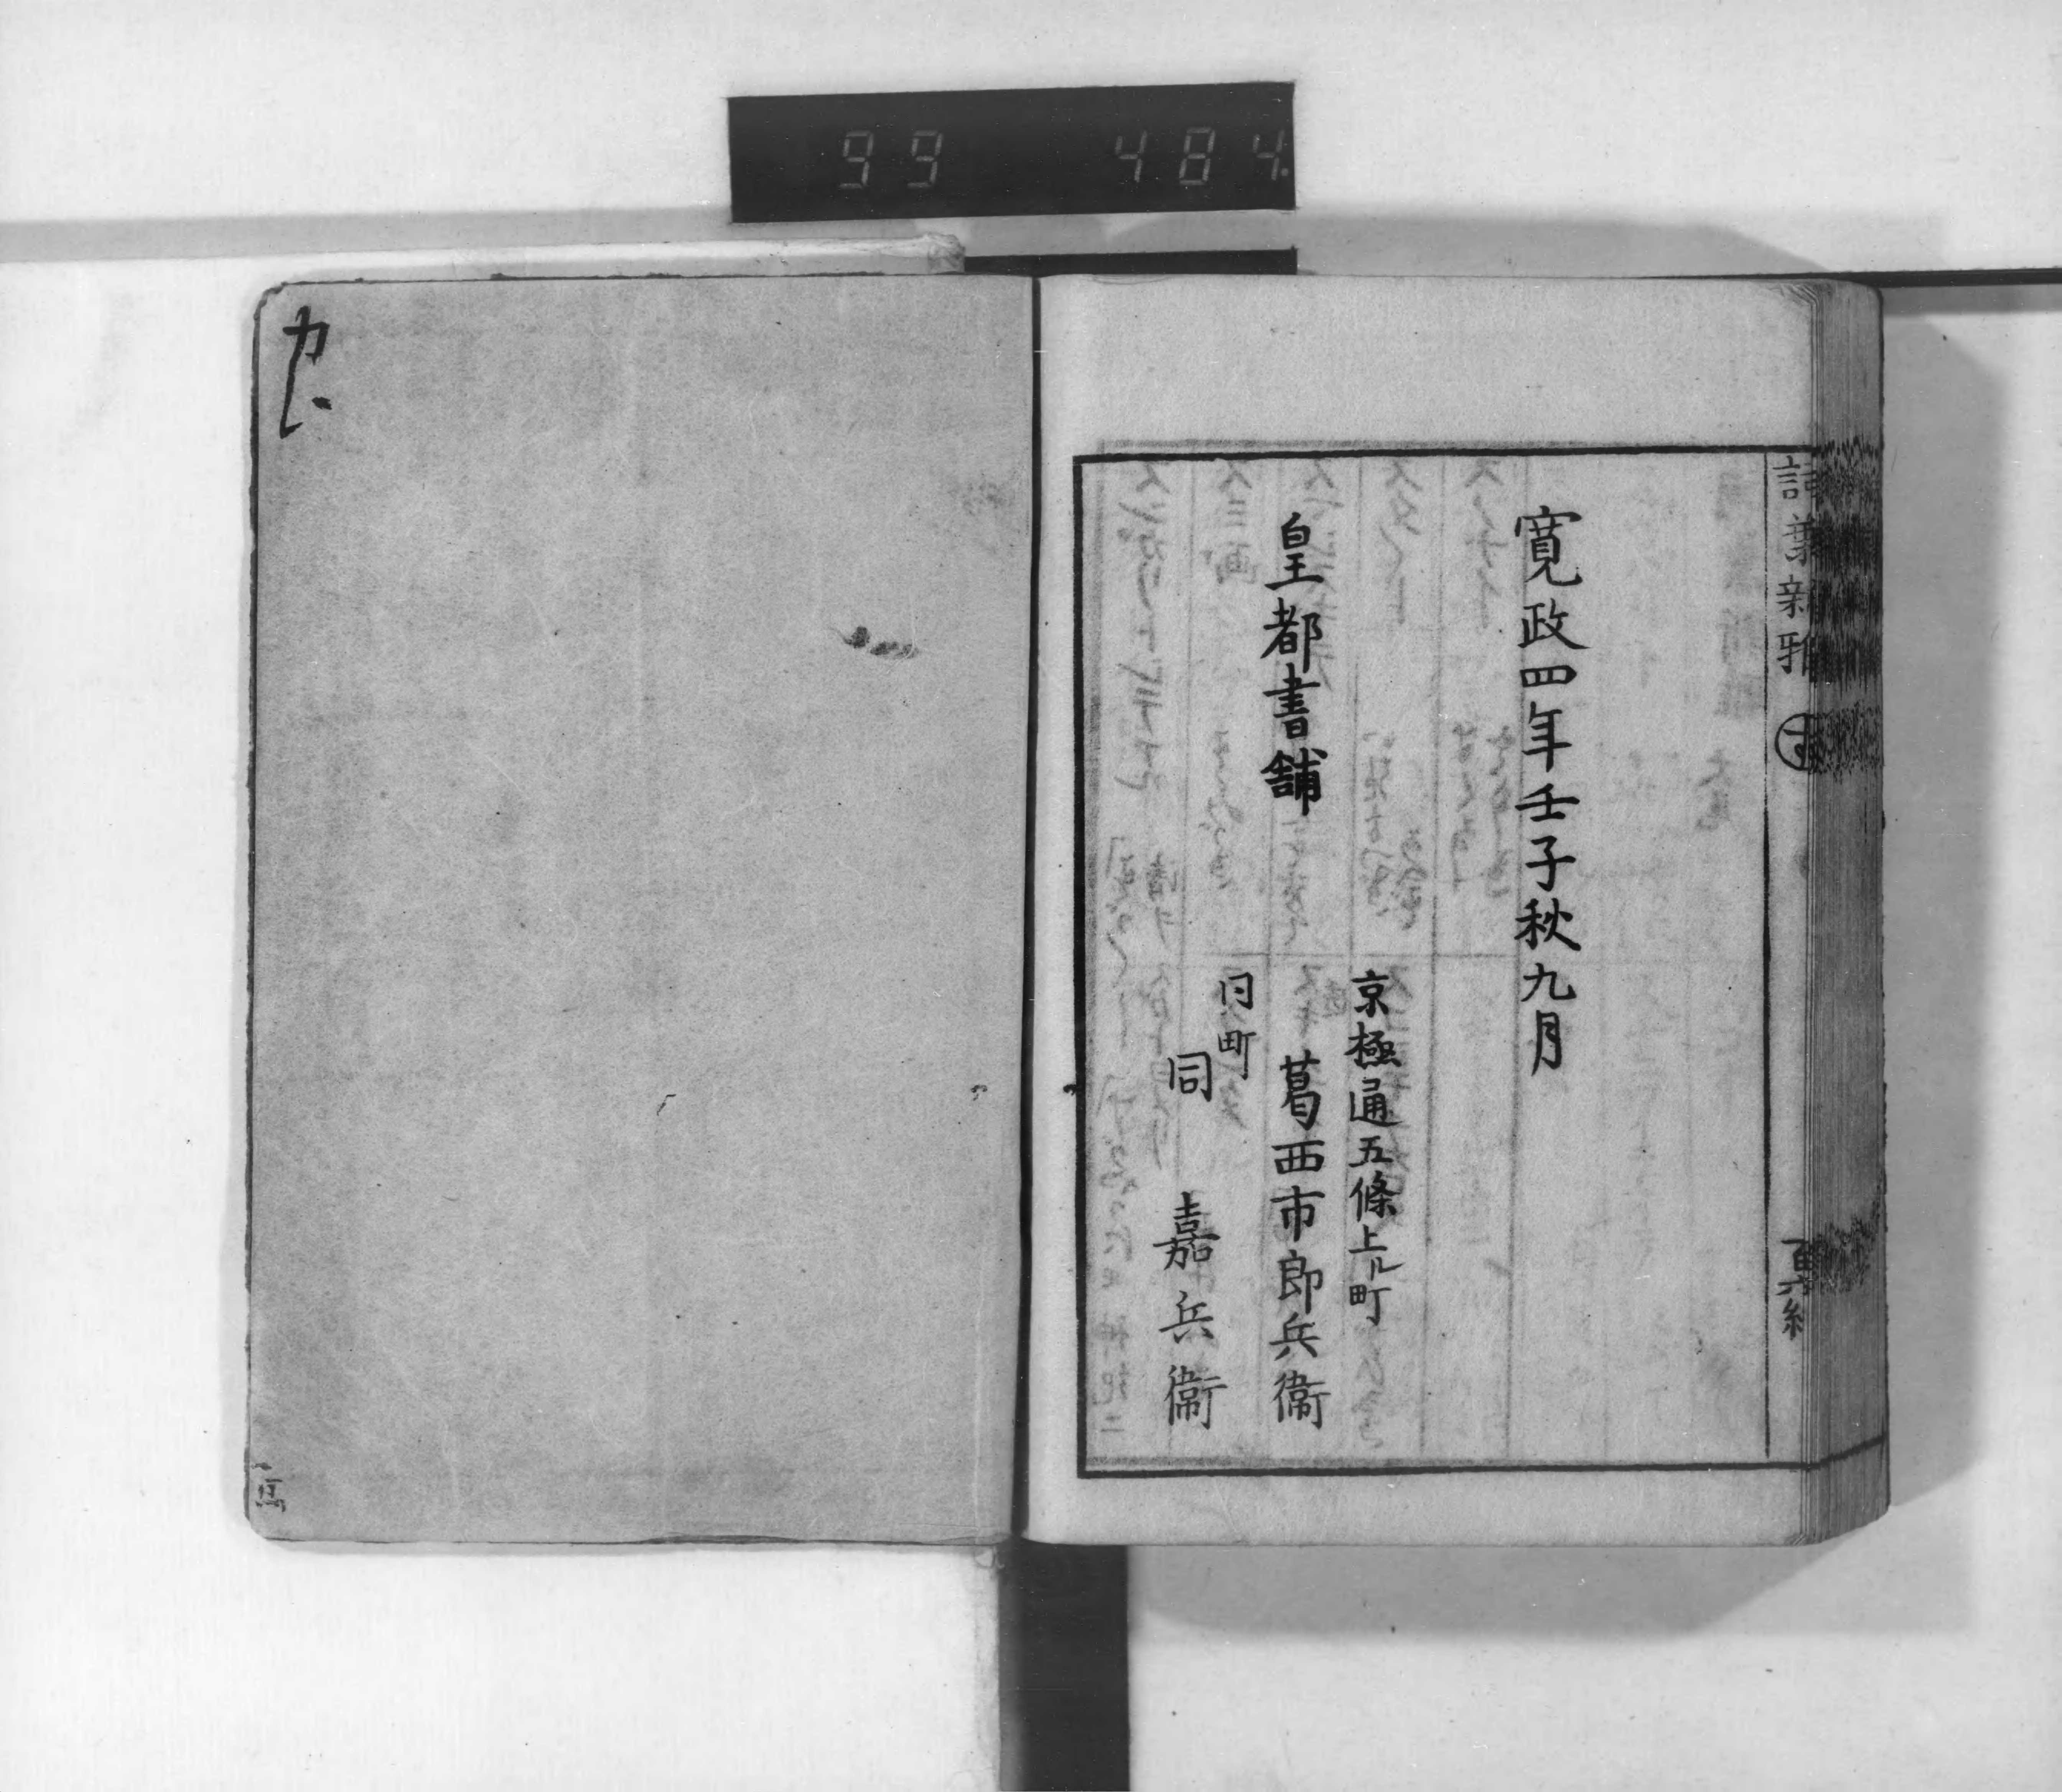 99 484
寛政四年壬子秋九月
皇都書舗
京極通五條上ル町
葛西市郎兵衞
同町
同 嘉兵衞
詞葉新雅